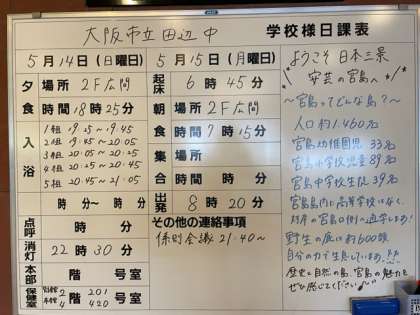 大阪市立田辺中 学校様日課表
5月14日(日曜日)
夕食 場所 2F広間
時間 18時25分
入浴
1組 19:25～19:45
2組 19:45～20:05
3組 20:05～20:25
4組 20:25～20:45
5組 20:45～21:05
時 分～ 時 分
点呼 時 分
消灯 22時30分
本部 階 号室
保健室 別館 2 201
本館 4 420
5月15日(月曜日)
起床 6時45分
朝食 場所 2F広間
時間 7時15分
集合 場所
時間 時 分
出発 8時20分
その他の連絡事項
係別会議 21:40～
ようこそ 日本三景
安芸の宮島へ
～宮島ってどんな島?～
人口 約1,460名
宮島幼稚園児 33名
宮島小学校児童 89名
宮島中学校生徒 39名
宮島島内に高等学校はなく、
対岸の宮島口側へ通学します!
野生の鹿は約600頭
自分の力で生活しています!!
歴史と自然の島、宮島の魅力を
ぜひ感じてください♪